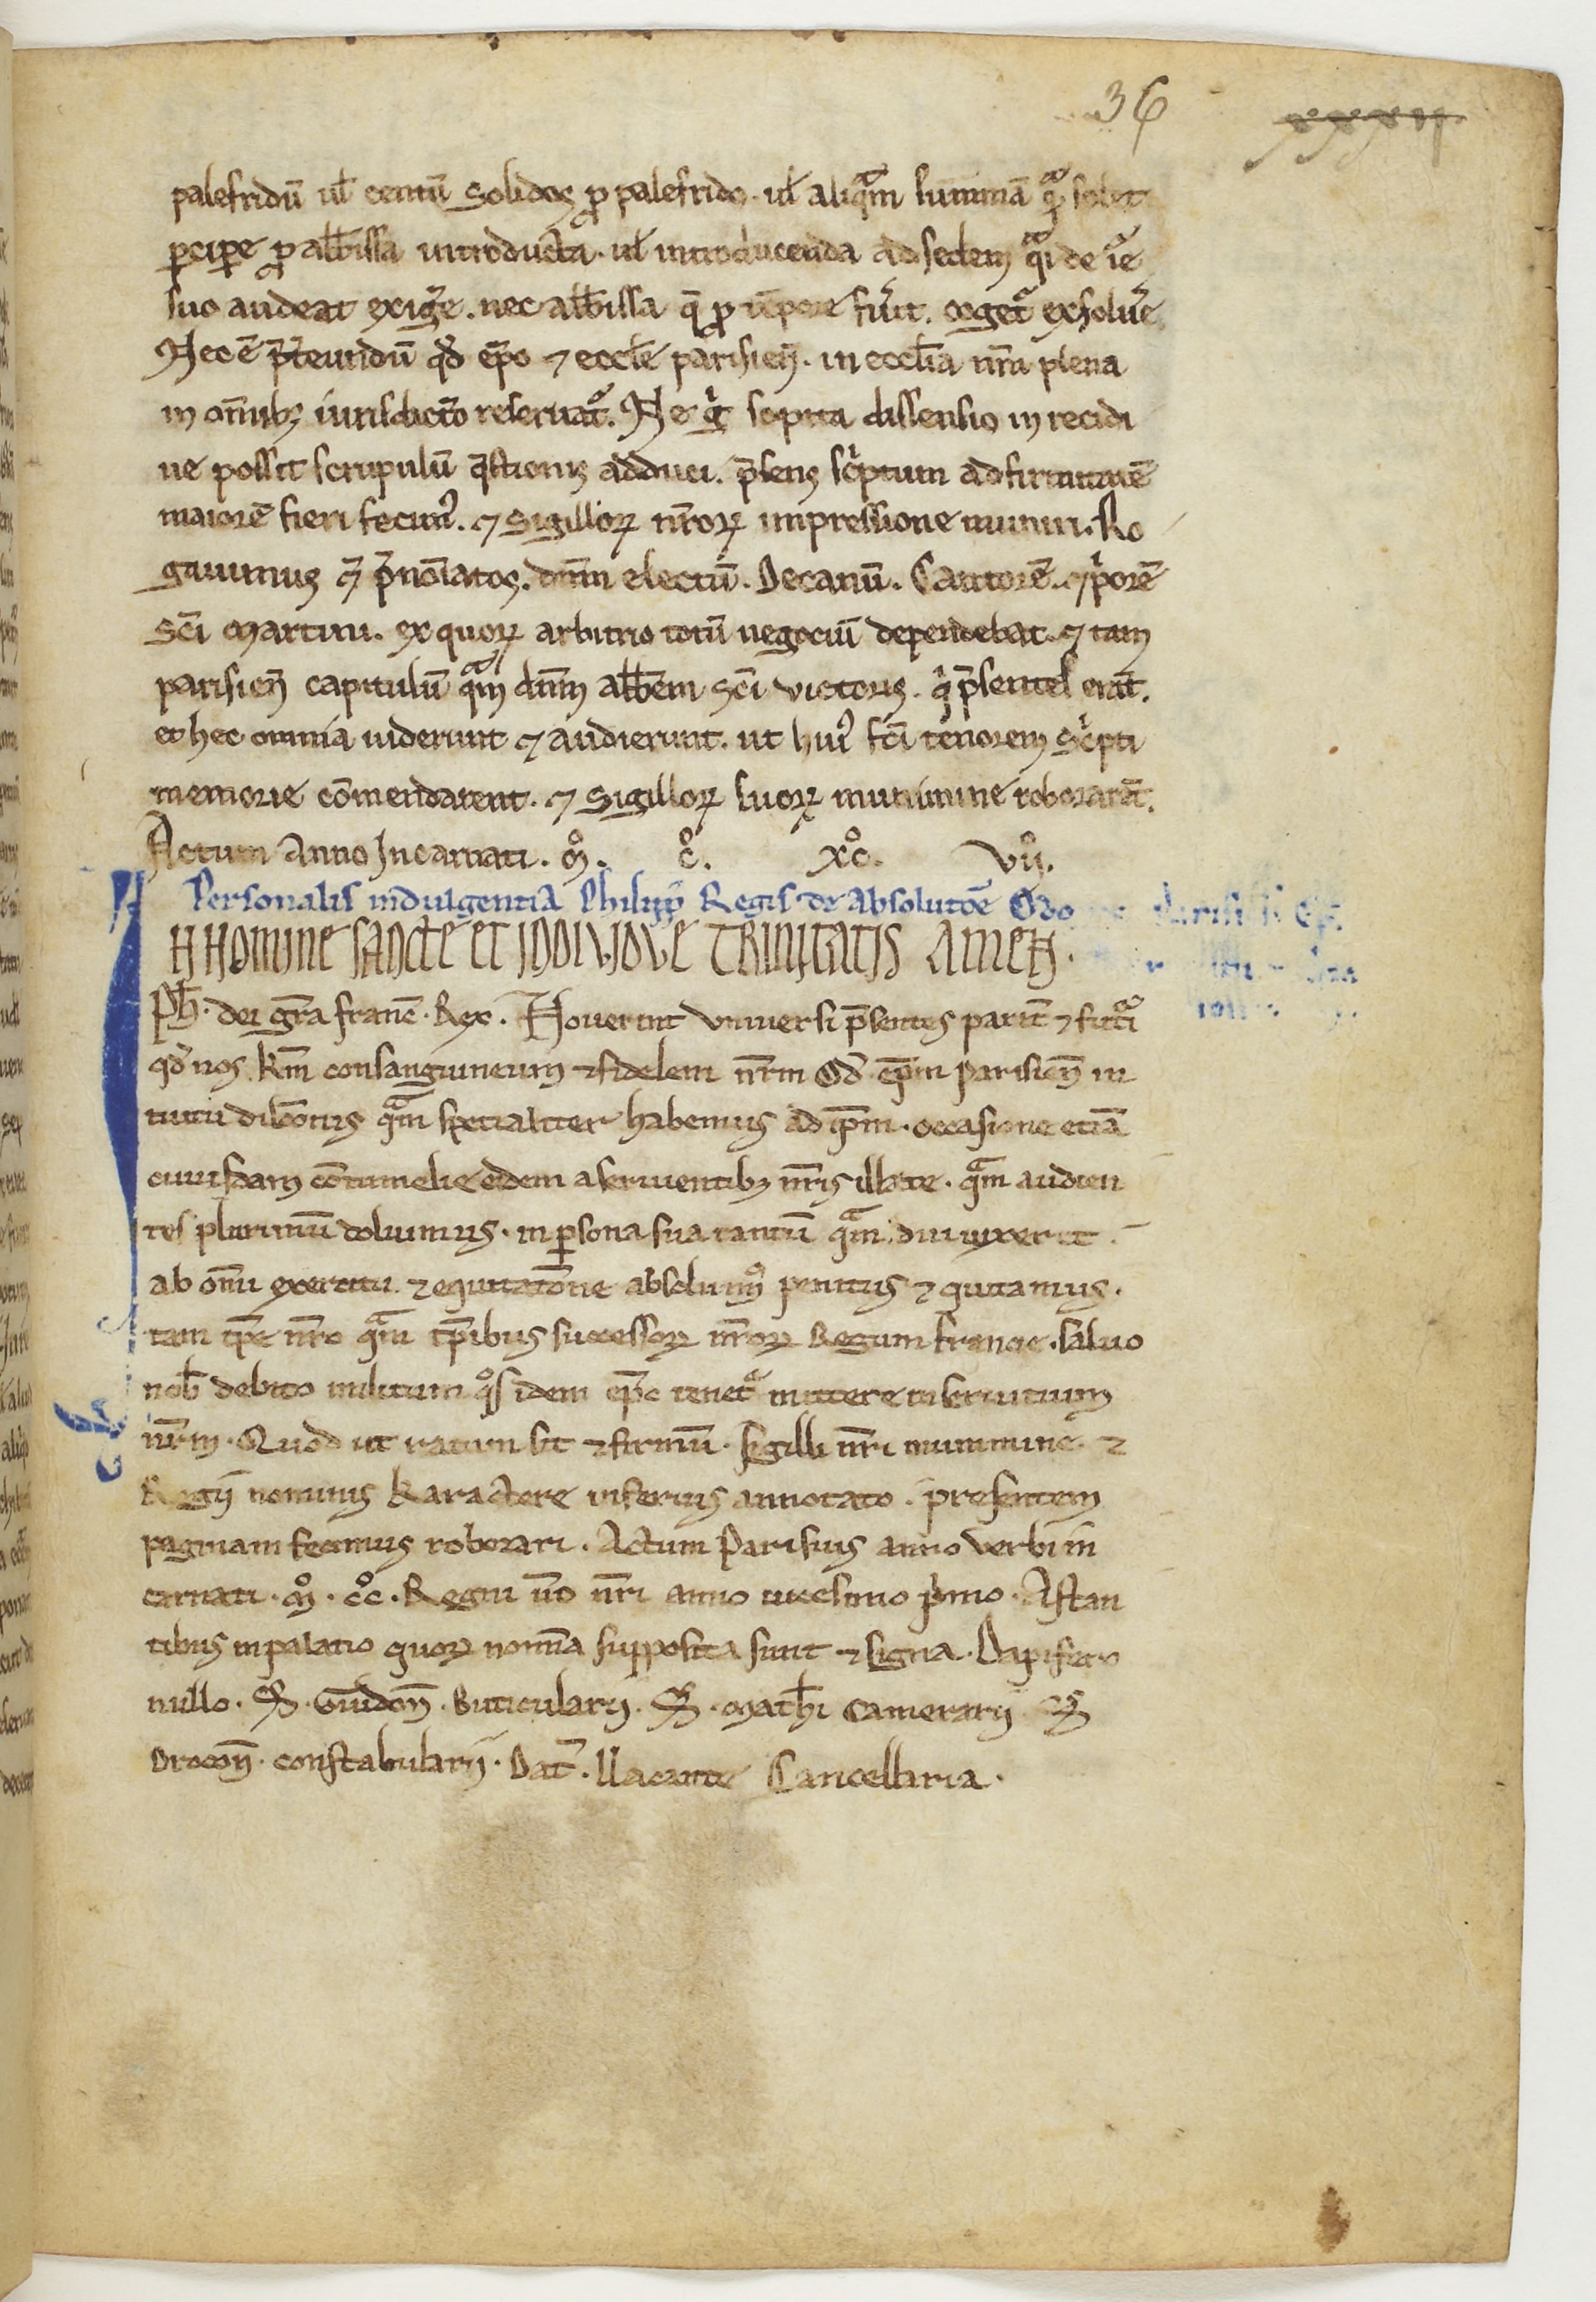 36
xxxii
palefridū ul̄ centū solidos p̱ palefrido. ul̄ aliqͣm summā q̨ͣ solet
ꝑcipe ꝓ abbissa introducta. ul̄ introducenda ad sedem q̨ͣi de iē
suo audeat exigē. nec abbissa q̄ ꝓ tēpore fūit. cogetᷣ exsoluē.
Nec ē p̄teundū qd̄ ep̄o ⁊ eccl̄e parisien̄. in eccl̄ia nr̄a plena
in om̄ibꝫ iurisdict̄o reseruatᷣ. Ne gͦ sopita dissensio in recidi
ue possit scrupulū q̄stionis adduci. p̄sens scͥptum ad firmitatē
maiorē fieri fecimꝰ. ⁊ sigilloꝝ nr̄oꝝ impressione muniri. Ro
gauimus ⁊ p̄nōiatos. dn̄m electū. Decanū. Cantorē. ⁊ pͥorē
Sc̄i Martini. ex quoꝝ arbitrio totū negociū dependebat. ⁊ tam
parisien̄ capitulū qͣm dn̄m abb̄em Sc̄i victoris. qͥ p̄sentes erāt.
et hec omnia uiderunt ⁊ audierunt. ut huiꝰ fc̄i tenorem scͥpti
memorie cōmendarent. ⁊ sigilloꝝ suoꝝ munimine roborarāt.
Actum Anno Incarnati. mͦ. cͦ. xcͦ. viiͦ.
Personalis indulgentia Philipi Regis de absolutōe Odo
parisi ep̄i
IN NOMINE SANCTE ET INDIVIDVE TRINITATIS AMEN.
Ph̄. dei gr̄a franc̄. Rex. Nouerint vniuersi p̄sentes parit̄ ⁊ futͥi
qd̄ nos km̄ consanguineum ⁊ fidelem nr̄m Od̄ ep̄m parisien̄ in
tuitu dilc̄onis qͣm specialiter habemus ad ip̄m. occasione etiā
cuiusdam cōtumelie eidem a seruientibꝫ nr̄is illate. qͣm audien
tes plurimū doluimus. in ꝑsona sua tantū qͣm diu uixerit
ab om̄i exercitu ⁊ equitatōne absoluimꝰ penitus ⁊ quitamus.
tam tp̄e nr̄o qͣm tp̄ibus successoꝝ nr̄oꝝ Regum francie. saluo
nob̄ debito militum qͦs idem ep̄c tenetᷣ mittere in seruitium
nr̄m. Quod ut ratum sit ⁊ firmū. sigilli nr̄i munimine ⁊
Regij nominis karactere inferius annotato. presentem
paginam fecimus roborari. Actum Parisius anno verbi in
carnati. mͦ. ccͦ. Regni ūo nr̄i anno uicesimo pͥmo. Astan
tibus in palatio quoꝝ nomīa supposita sunt ⁊ signa. Dapifero
nullo. S̄. Guidon̄. Buticularij. S̄. Mathi Camerarij. S̄
Drocon̄. constabularij. Dat̄. Uacante Cancellaria.